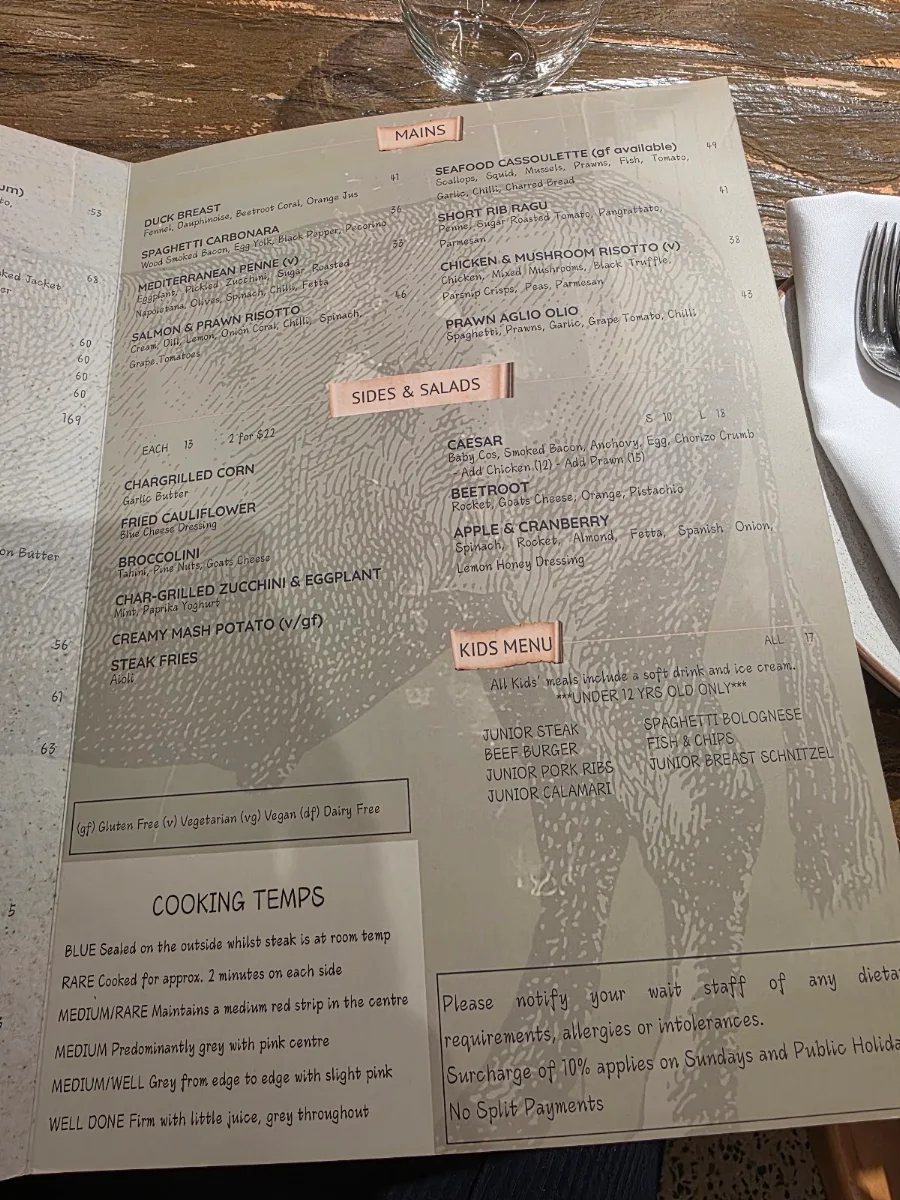 um)
to,
53
ked Jacket
er
68
60
60
60
60
169
on Butter
56
61
63
5
MAINS
DUCK BREAST 41
Fennel, Dauphinoise, Beetroot Coral, Orange Jus
SPAGHETTI CARBONARA 36
Wood Smoked Bacon, Egg Yolk, Black Pepper, Pecorino
MEDITERRANEAN PENNE (v) 33
Eggplant, Pickled Zucchini, Sugar Roasted
Napoletana, Olives, Spinach, Chilli, Fetta
SALMON & PRAWN RISOTTO 46
Cream, Dill, Lemon, Onion Coral, Chilli, Spinach,
Grape Tomatoes
SEAFOOD CASSOULETTE (gf available) 49
Scallops, Squid, Mussels, Prawns, Fish, Tomato,
Garlic, Chilli, Charred Bread
SHORT RIB RAGU 41
Penne, Sugar Roasted Tomato, Pangrattato,
Parmesan
CHICKEN & MUSHROOM RISOTTO (v) 38
Chicken, Mixed Mushrooms, Black Truffle,
Parsnip Crisps, Peas, Parmesan
PRAWN AGLIO OLIO 43
Spaghetti, Prawns, Garlic, Grape Tomato, Chilli
SIDES & SALADS
EACH 13 2 for $22
CHARGRILLED CORN
Garlic Butter
FRIED CAULIFLOWER
Blue Cheese Dressing
BROCCOLINI
Tahini, Pine Nuts, Goats Cheese
CHAR-GRILLED ZUCCHINI & EGGPLANT
Mint, Paprika Yoghurt
CREAMY MASH POTATO (v/gf)
STEAK FRIES
Aioli
S 10 L 18
CAESAR
Baby Cos, Smoked Bacon, Anchovy, Egg, Chorizo Crumb
- Add Chicken (12) - Add Prawn (15)
BEETROOT
Rocket, Goats Cheese, Orange, Pistachio
APPLE & CRANBERRY
Spinach, Rocket, Almond, Fetta, Spanish Onion,
Lemon Honey Dressing
KIDS MENU
ALL 17
All Kids' meals include a soft drink and ice cream.
***UNDER 12 YRS OLD ONLY***
JUNIOR STEAK
BEEF BURGER
JUNIOR PORK RIBS
JUNIOR CALAMARI
SPAGHETTI BOLOGNESE
FISH & CHIPS
JUNIOR BREAST SCHNITZEL
(gf) Gluten Free (v) Vegetarian (vg) Vegan (df) Dairy Free
COOKING TEMPS
BLUE Sealed on the outside whilst steak is at room temp
RARE Cooked for approx. 2 minutes on each side
MEDIUM/RARE Maintains a medium red strip in the centre
MEDIUM Predominantly grey with pink centre
MEDIUM/WELL Grey from edge to edge with slight pink
WELL DONE Firm with little juice, grey throughout
Please notify your wait staff of any dieta
requirements, allergies or intolerances.
Surcharge of 10% applies on Sundays and Public Holida
No Split Payments